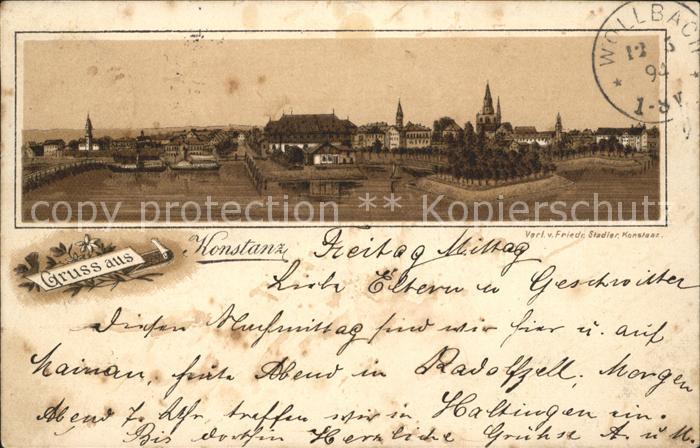 WOLLBACH
12 5
94
1-8V
copy protection · Kopierschutz
Verl. v. Friedr. Stadler, Konstanz.
Gruss aus
Konstanz Freitag Mittag
Liebe Eltern u Geschwister
Diesen Nachmittag sind wir hier u. auf
Mainau, heute Abend in Radolfzell. Morgen
Abend 7 Uhr treffen wir in Haltingen ein.
Bis dorthin Herzliche Grüße A u M.